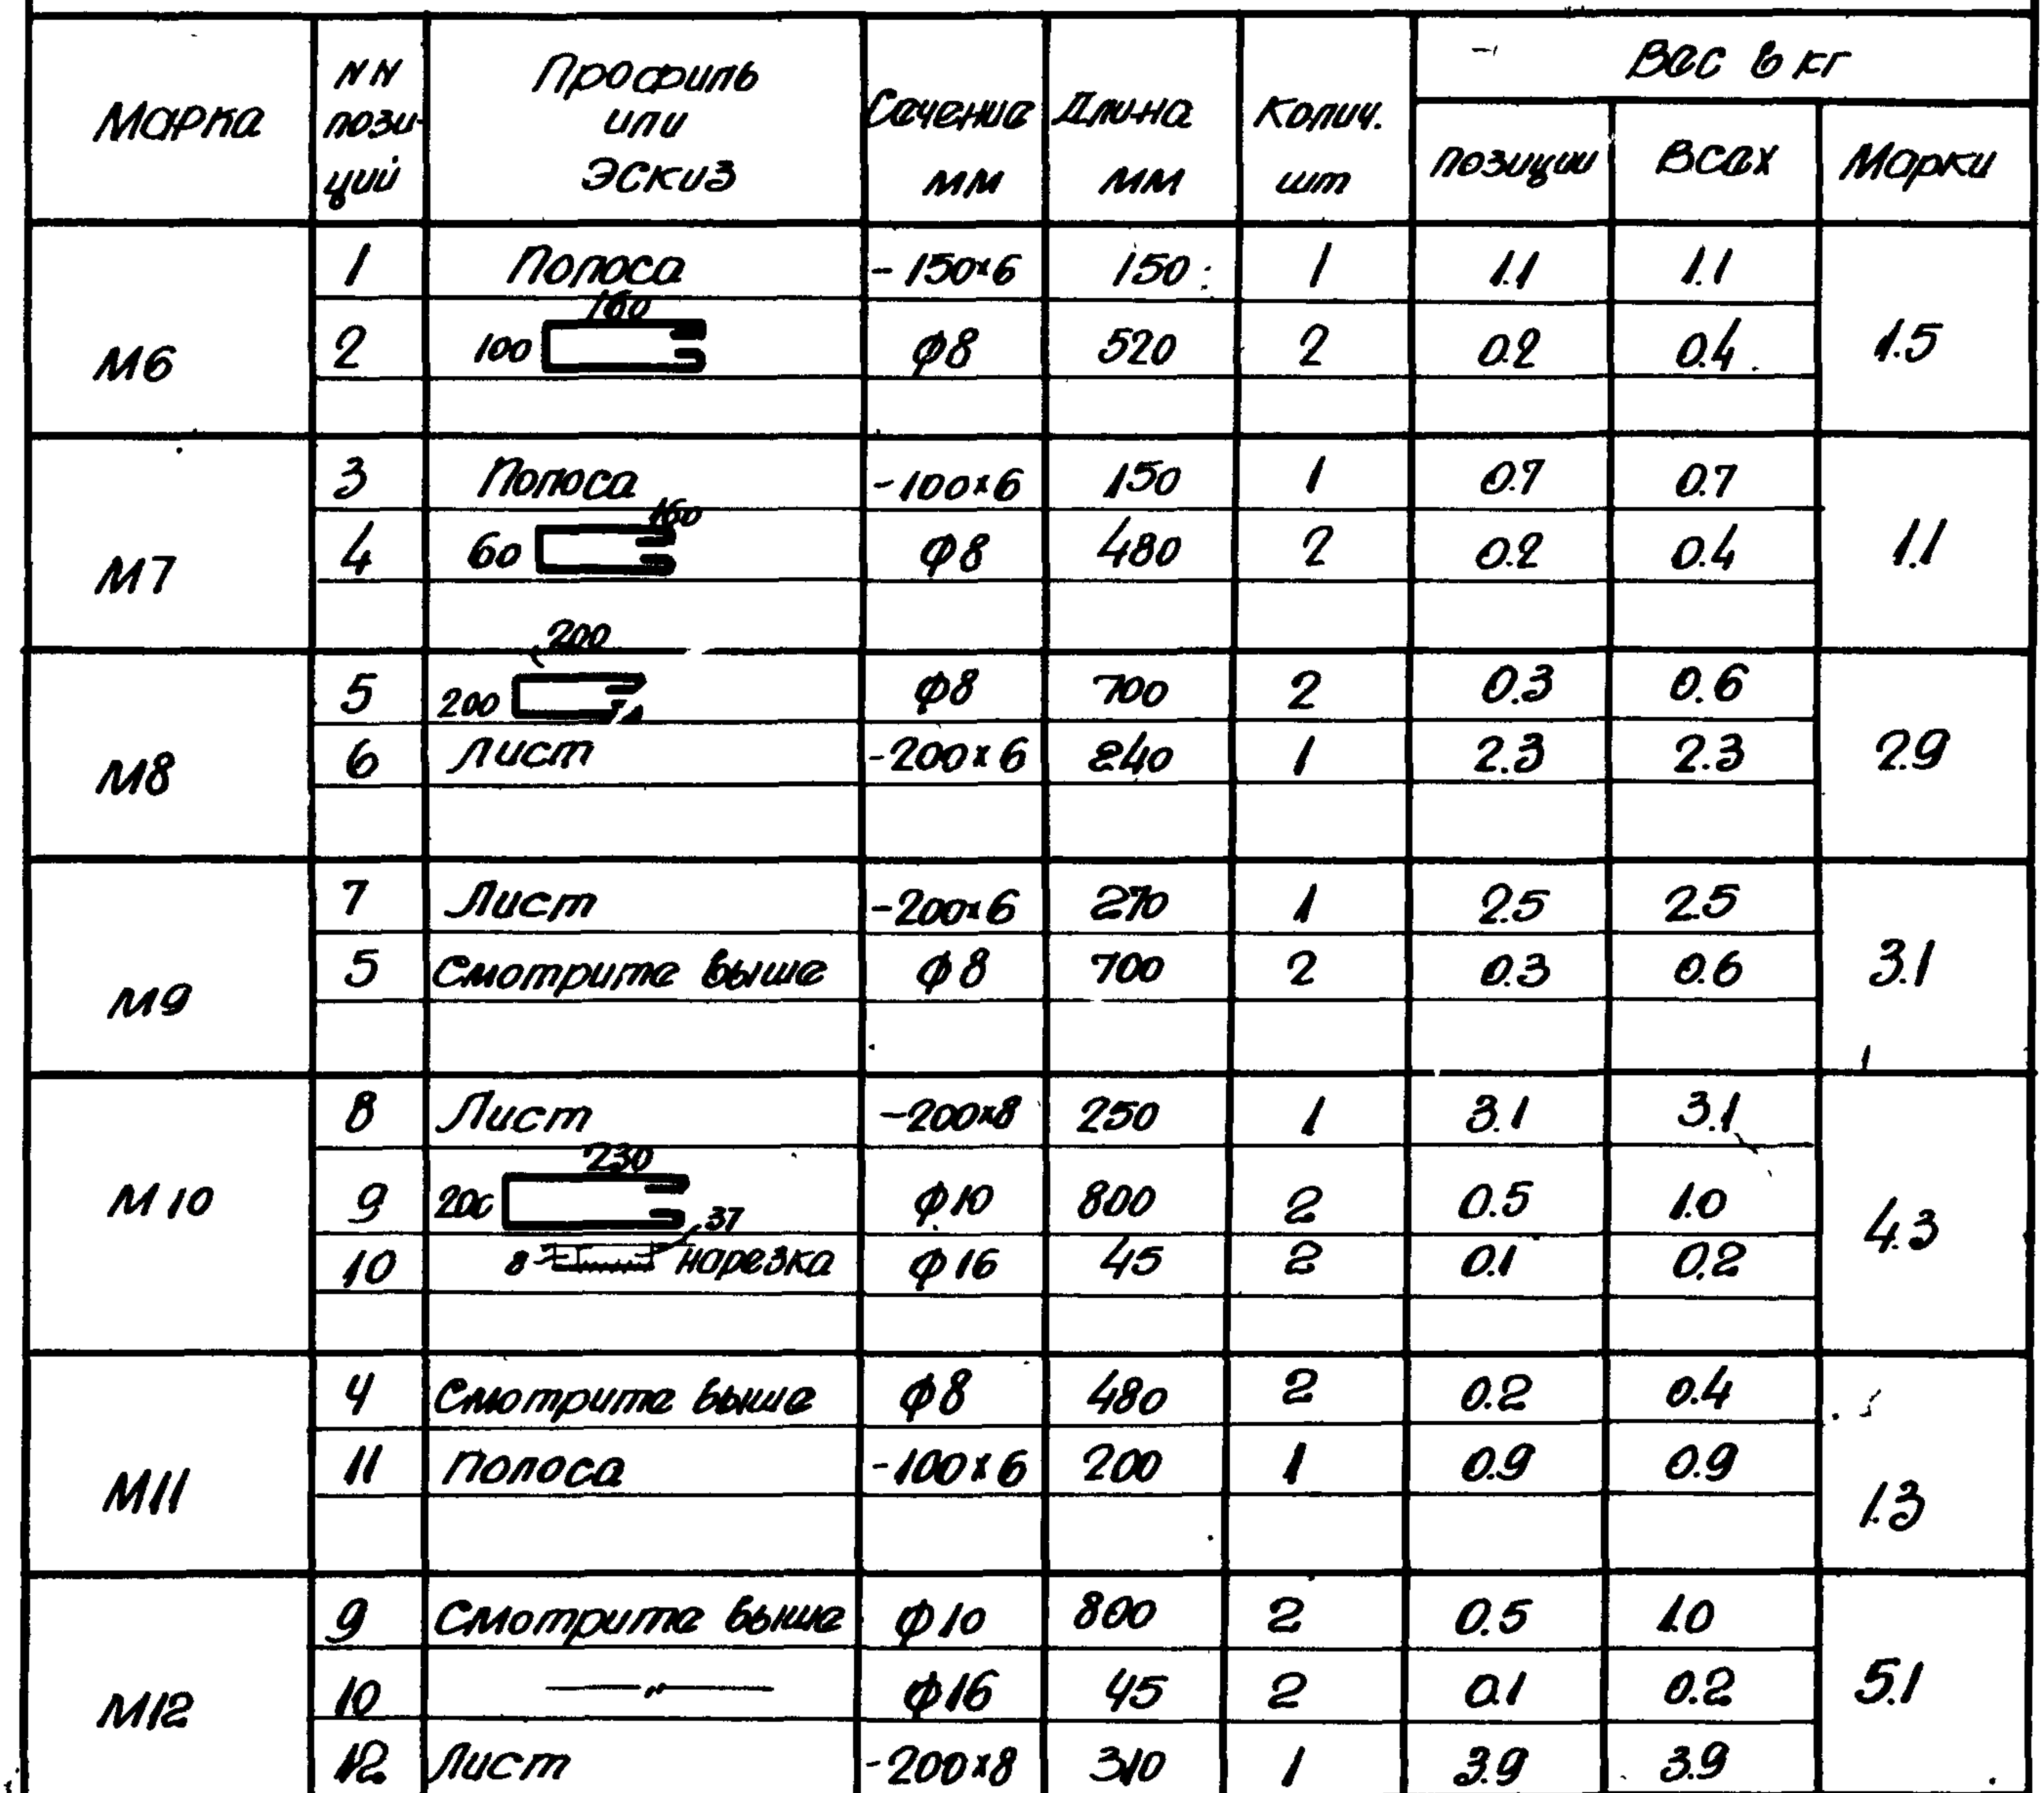 Марка NN пози- ций Профиль или Эскиз Сечение мм Длина мм Колич. шт Вес в кг
позиции Всех Марки
М6 1 Полоса -150×6 150 1 1.1 1.1 1.5
2 100 160 ϕ8 520 2 0.2 0.4
М7 3 Полоса -100×6 150 1 0.7 0.7 1.1
4 60 160 ϕ8 480 2 0.2 0.4
М8 5 200 200 ϕ8 700 2 0.3 0.6 2.9
6 Лист -200×6 240 1 2.3 2.3
М9 7 Лист -200×6 270 1 2.5 2.5 3.1
5 Смотрите выше ϕ8 700 2 0.3 0.6
М10 8 Лист -200×8 250 1 3.1 3.1 4.3
9 200 230 ϕ10 800 2 0.5 1.0
10 8 37 нарезка ϕ16 45 2 0.1 0.2
М11 4 Смотрите выше ϕ8 480 2 0.2 0.4 1.3
11 Полоса -100×6 200 1 0.9 0.9
М12 9 Смотрите выше ϕ10 800 2 0.5 1.0 5.1
10 —〃— ϕ16 45 2 0.1 0.2
12 Лист -200×8 310 1 3.9 3.9